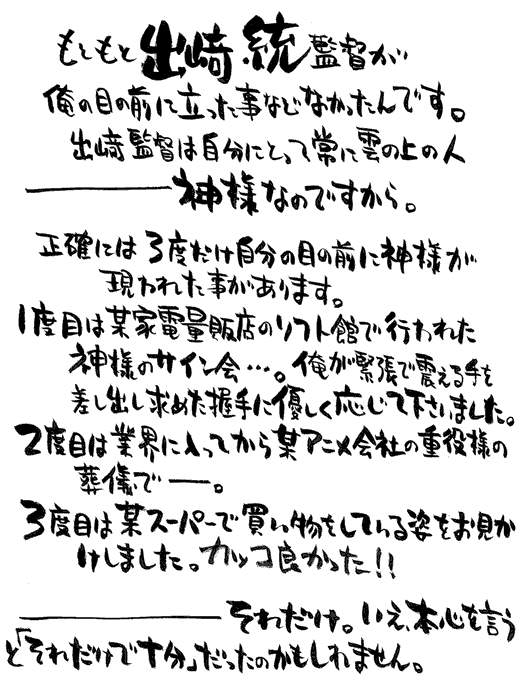 もともと出﨑統監督が
俺の目の前に立った事などなかったんです。
出﨑監督は自分にとって常に雲の上の人
――――神様なのですから。
正確には3度だけ自分の目の前に神様が
現われた事があります。
1度目は某家電量販店のソフト館で行われた
神様のサイン会…。俺が緊張で震える手を
差し出し求めた握手に優しく応じて下さいました。
2度目は業界に入ってから某アニメ会社の重役様の
葬儀で――。
3度目は某スーパーで買い物をしている姿をお見か
けしました。カッコ良かった!!
――――それだけ。いえ、本心を言う
と「それだけで十分」だったのかもしれません。